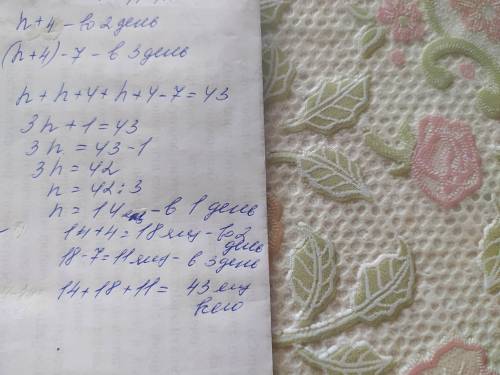 n+4 - во 2 день
(n+4)-7 - в 3 день
n+n+4+n+4-7=43
3n+1=43
3n=43-1
3n=42
n=42:3
n=14ящ - в 1 день
14+4=18ящ - во 2 день
18-7=11ящ - в 3 день
14+18+11= 43 ящ
всего